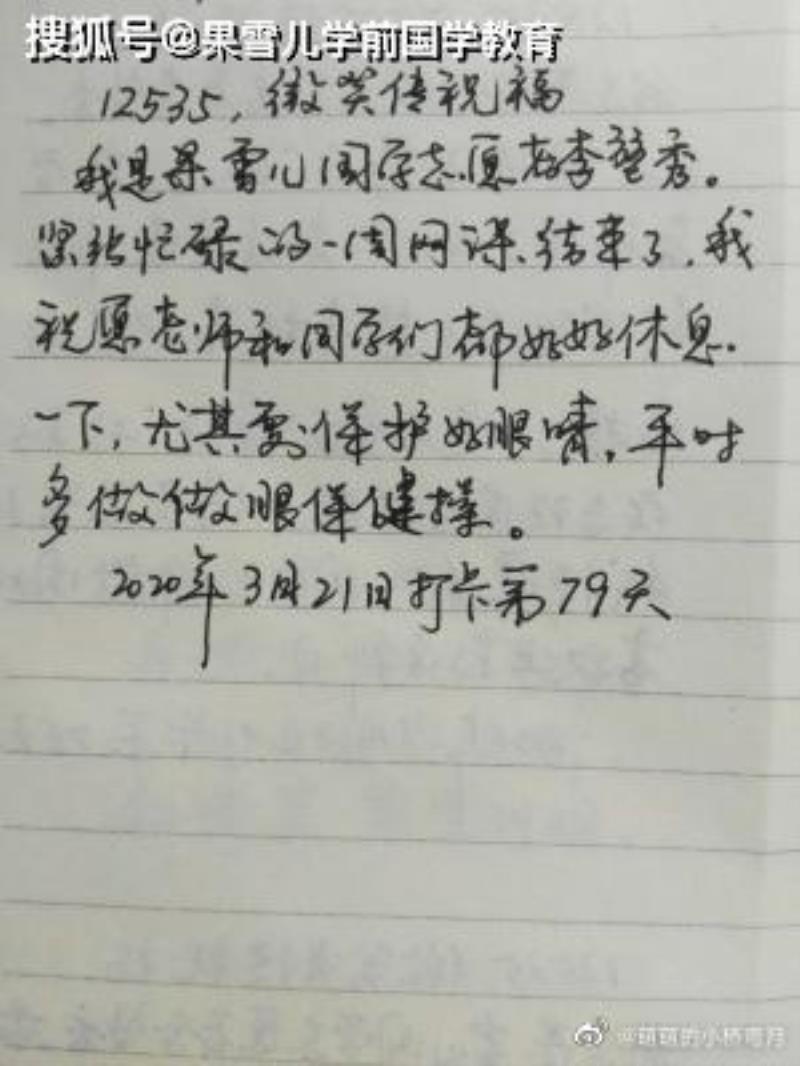 搜狐号@果雪儿学前国学教育
12535，微笑传祝福
我是果雪儿国学志愿者李莹秀。
紧张忙碌的一周网课结束了，我
祝愿老师和同学们都好好休息
一下，尤其要保护好眼睛，平时
多做做眼保健操。
2020年3月21日打卡第79天
@萌萌的小桥弯月